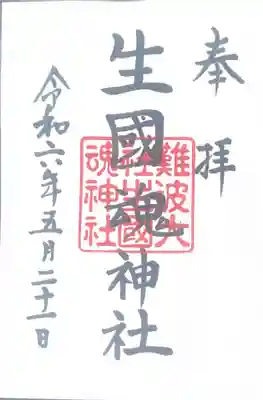 奉拝
生國魂神社
難波大
社生國
魂神社
令和六年五月二十一日